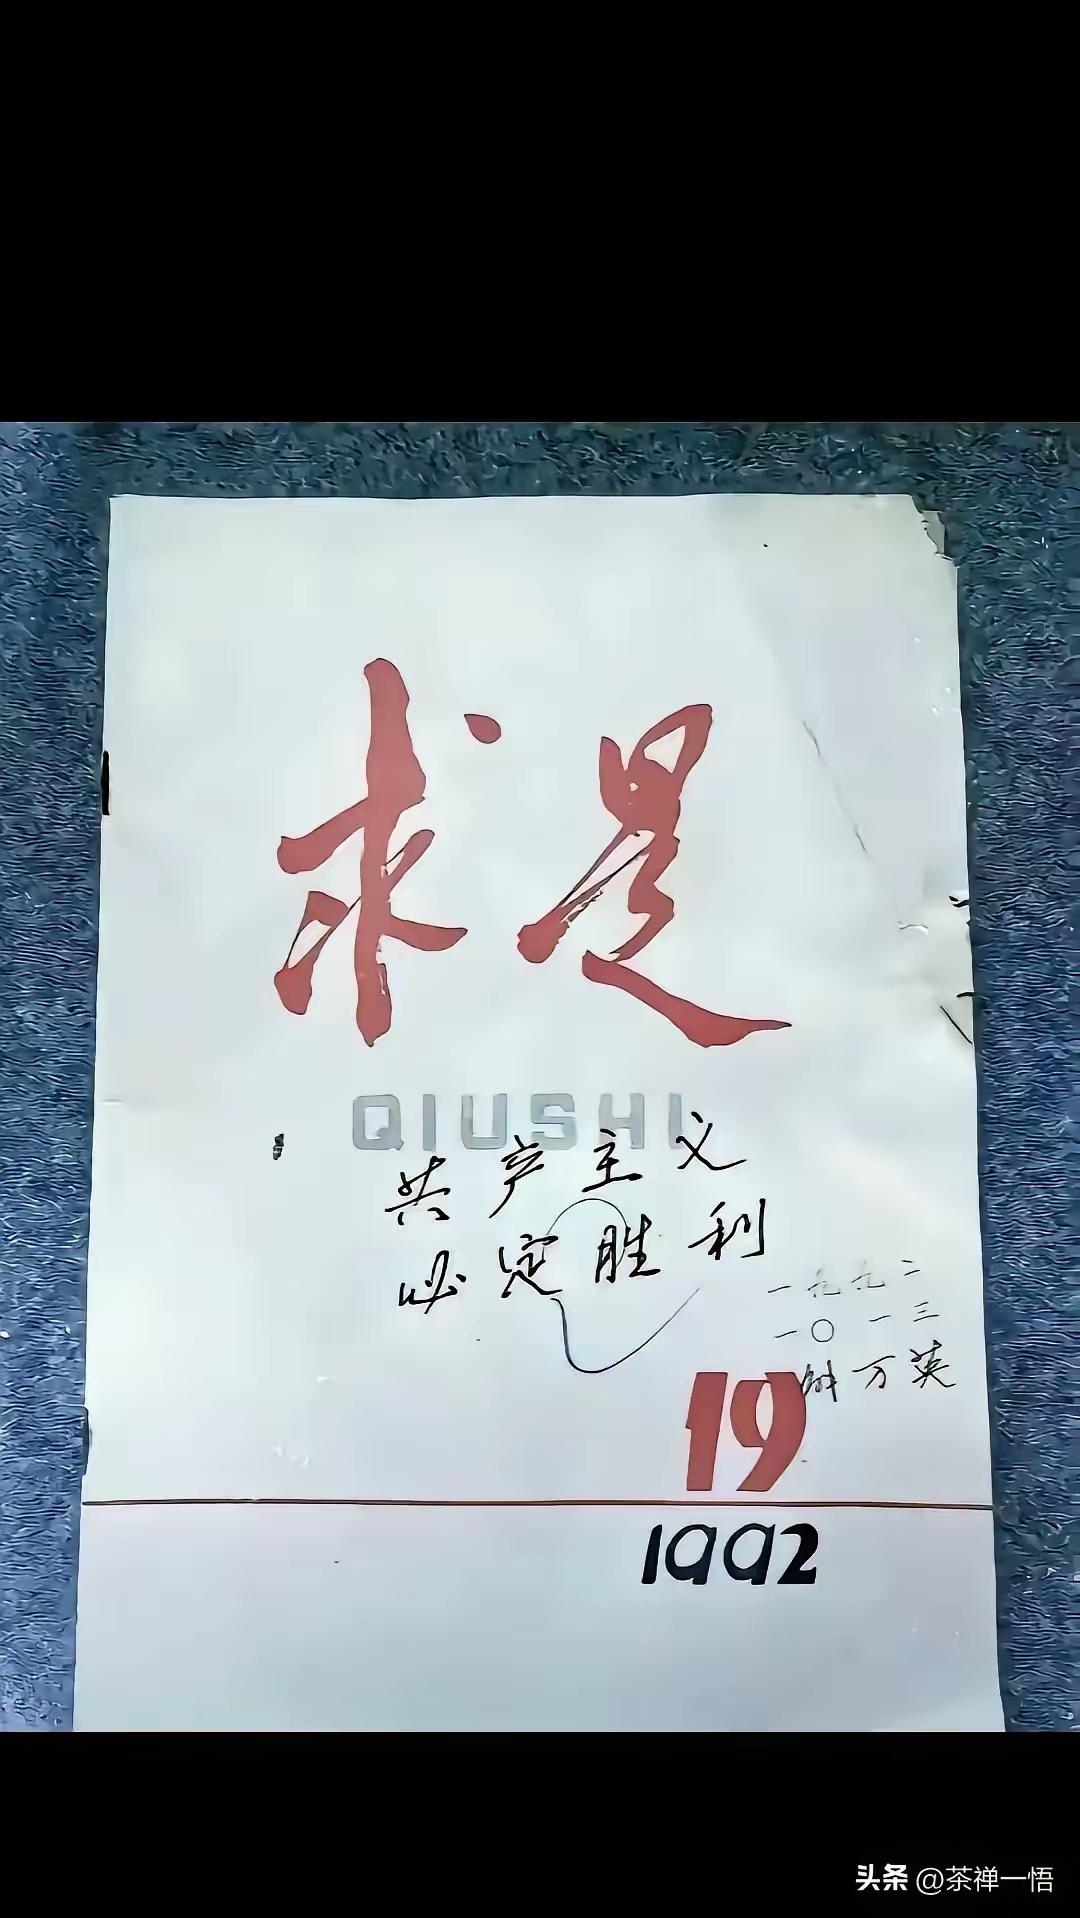 求是
QIUSHI
共产主义
必定胜利
一九九二
一〇 一三
万英
19
1992
头条 @茶禅一悟